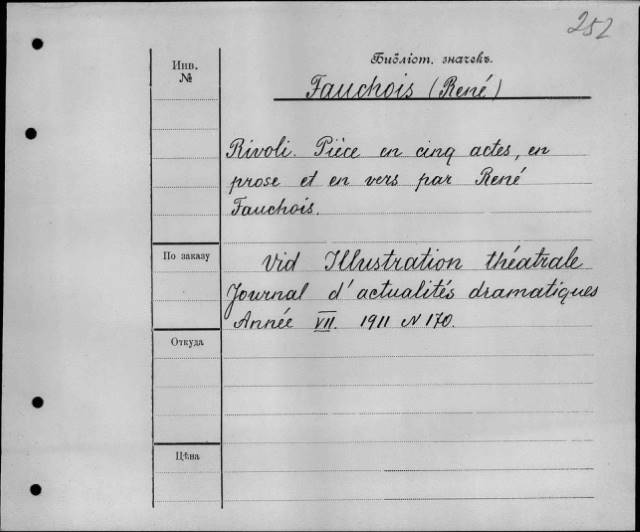 252
Инв.
№
Библіот. значекъ.
Fauchois (René)
Rivoli. Pièce en cinq actes, en
prose et en vers par René
Fauchois.
По заказу
Vid Illustration théatrale
Journal d'actualités dramatiques
Année VII. 1911 N 170.
Откуда
Цѣна